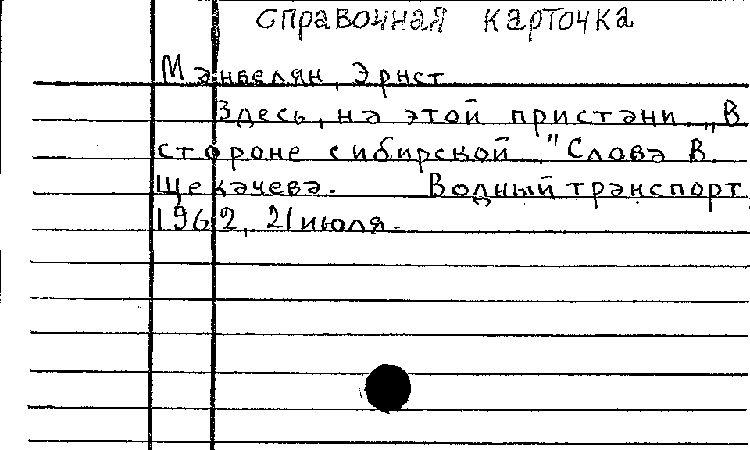 справочная карточка
Манвелян, Эрнст
Здесь, на этой пристани. „В
стороне сибирской". Слова В.
Щекачева. Водный транспорт,
1962, 21 июля.